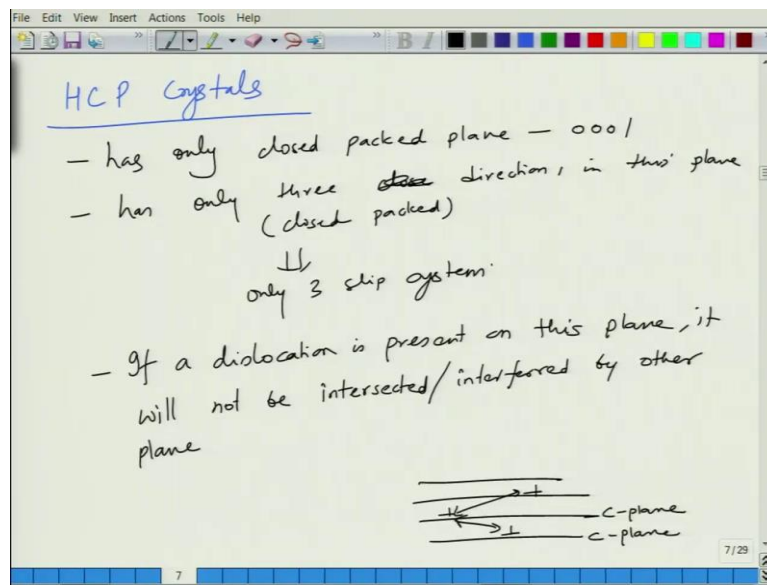 File Edit View Insert Actions Tools Help
HCP Crystals
- has only closed packed plane - 0001
- has only three direction, in this plane
(closed packed)
only 3 slip system
- If a dislocation is present on this plane, it
will not be intersected/interferred by other
plane
c-plane
c-plane
7/29
7